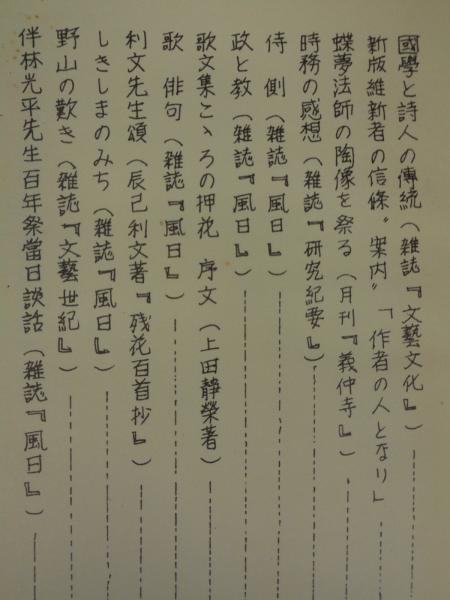 國學と詩人の傳統（雑誌『文藝文化』）
新版維新者の信條〝案内〟「作者の人となり」
蝶夢法師の陶像を祭る（月刊『義仲寺』）
時務の感想（雑誌『研究紀要』）
侍側（雑誌『風日』）
政と教（雑誌『風日』）
歌文集こゝろの押花 序文（上田靜榮著）
歌 俳句（雑誌『風日』）
利文先生頌（辰己利文著『残花百首抄』）
しきしまのみち（雑誌『風日』）
野山の歎き（雑誌『文藝世紀』）
伴林光平先生百年祭當日談話（雑誌『風日』）